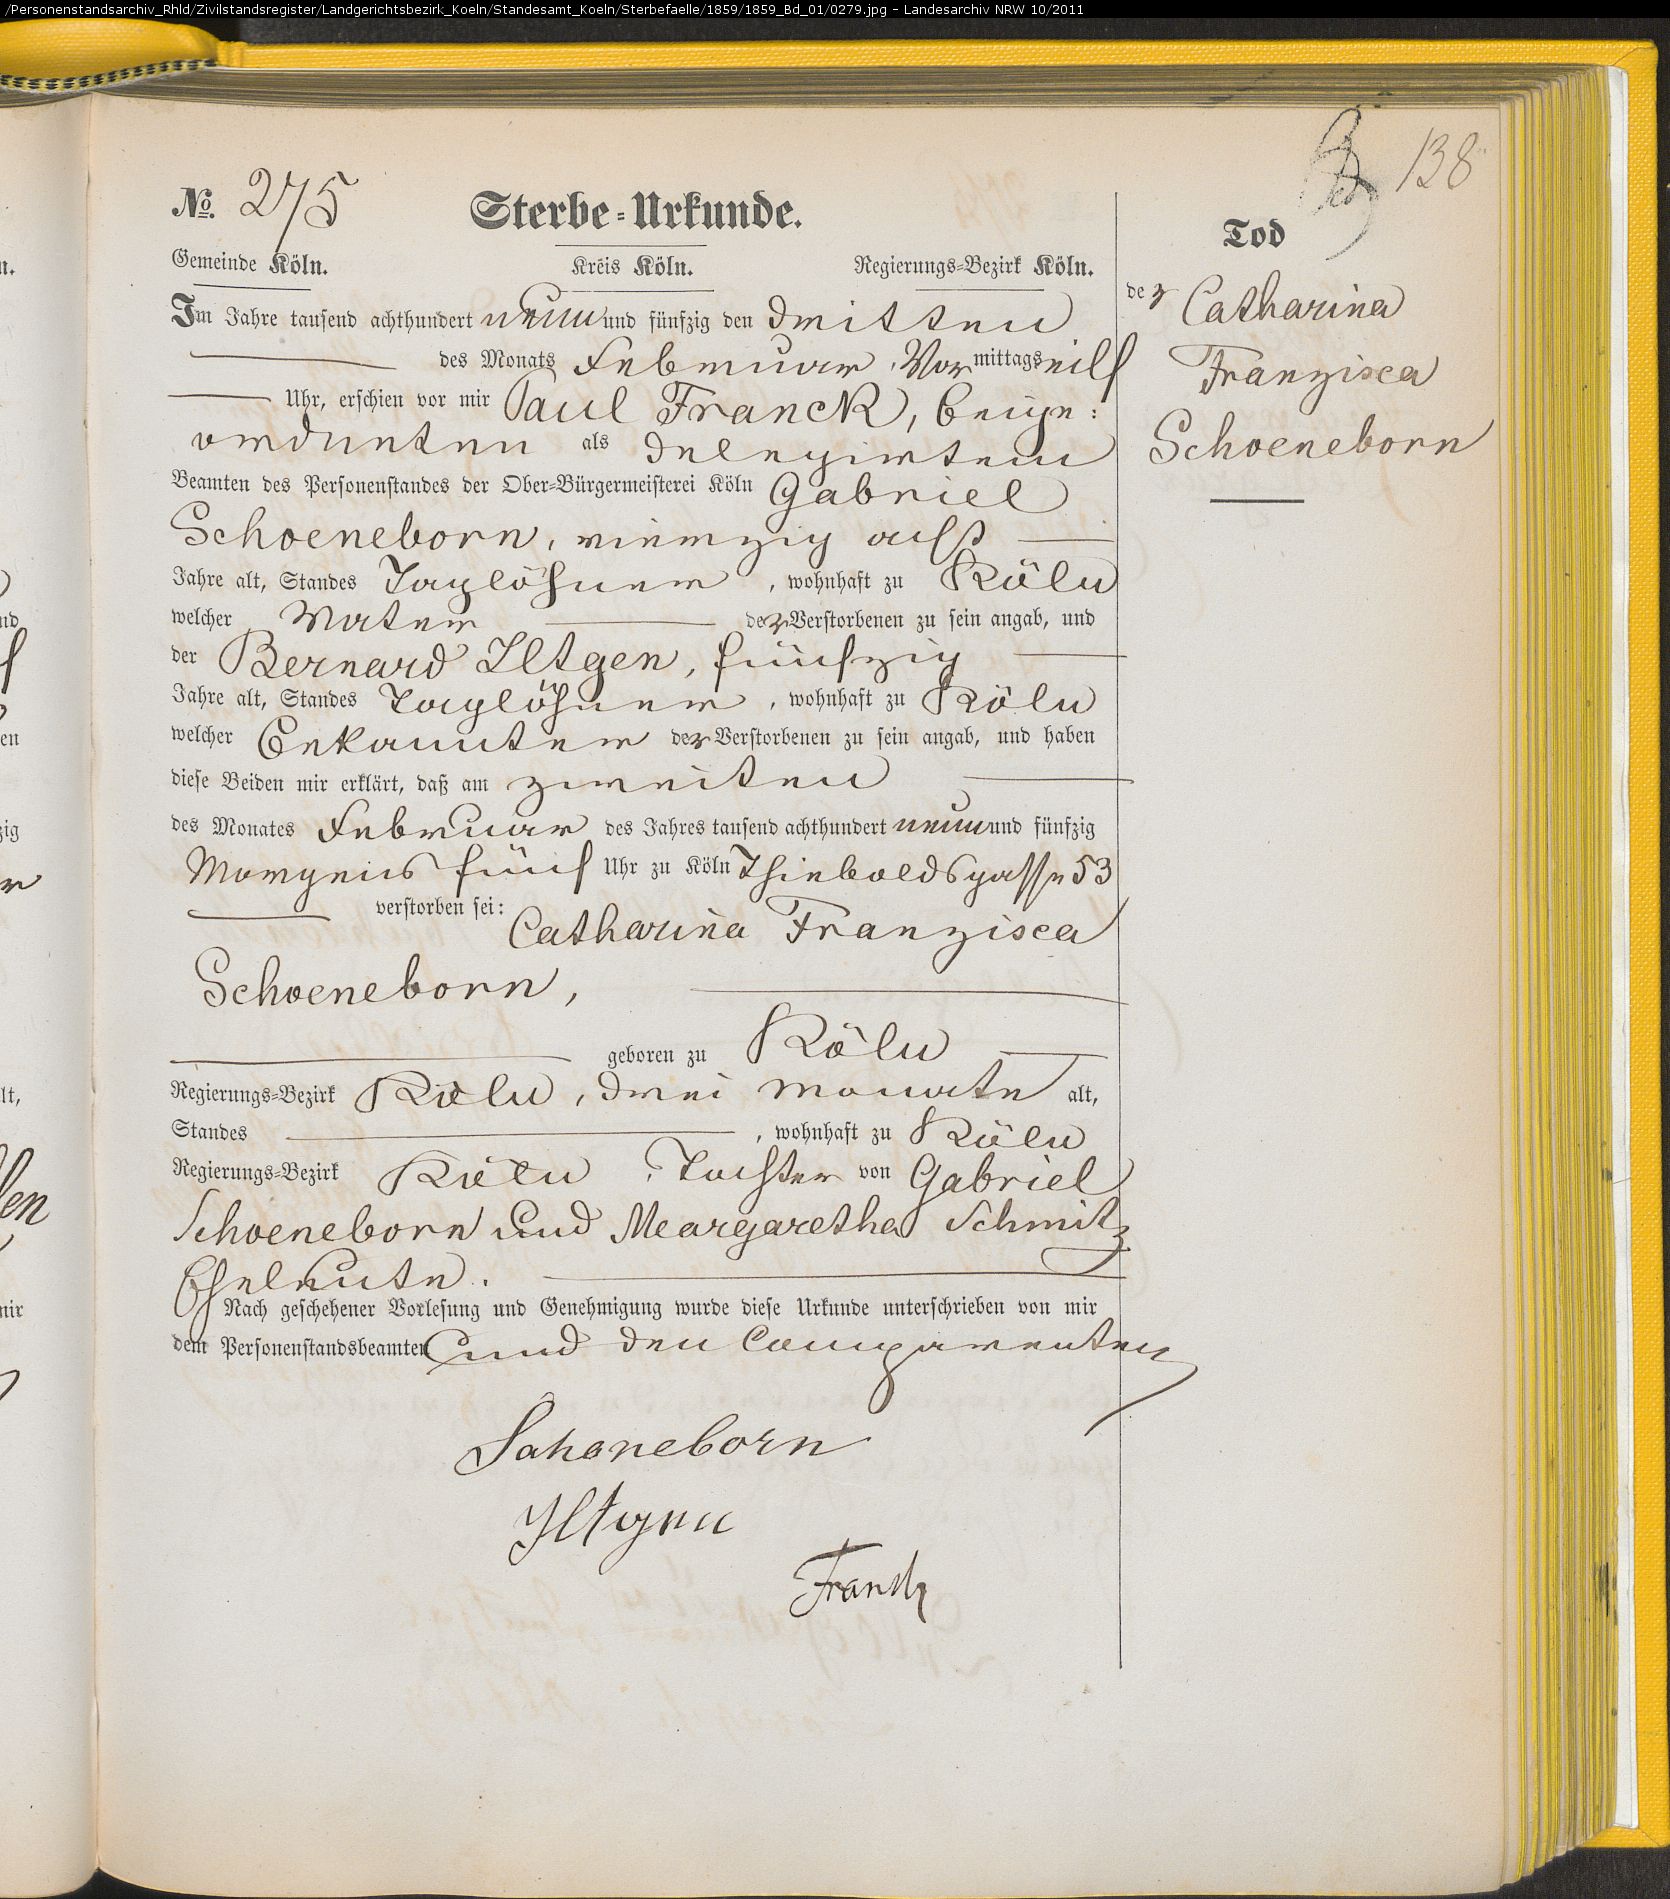 /Personenstandsarchiv_Rhld/Zivilstandsregister/Landgerichtsbezirk_Koeln/Standesamt_Koeln/Sterbefaelle/1859/1859_Bd_01/0279.jpg - Landesarchiv NRW 10/2011
138
No. 275 Sterbe-Urkunde.
Gemeinde Köln. Kreis Köln. Regierungs-Bezirk Köln.
Im Jahre tausend achthundert neun und fünfzig den dritten
des Monats Februar, Vormittags eilf
Uhr, erschien vor mir Paul Franck, beige:
ordneten als delegirtem
Beamten des Personenstandes der Ober-Bürgermeisterei Köln Gabriel
Schoeneborn, vierzig acht
Jahre alt, Standes Taglöhner, wohnhaft zu Köln
welcher Vater der Verstorbenen zu sein angab, und
der Bernard Iltgen, fünfzig
Jahre alt, Standes Taglöhner, wohnhaft zu Köln
welcher Bekannter der Verstorbenen zu sein angab, und haben
diese Beiden mir erklärt, daß am zweiten
des Monates Februar des Jahres tausend achthundert neun und fünfzig
Morgens fünf Uhr zu Köln Thieboldsgasse 53
verstorben sei: Catharina Franzisca
Schoeneborn,
geboren zu Köln
Regierungs-Bezirk Köln, drei Monate alt,
Standes , wohnhaft zu Köln
Regierungs-Bezirk Köln, Tochter von Gabriel
Schoeneborn und Margaretha Schmitz
Eheleute.
Nach geschehener Vorlesung und Genehmigung wurde diese Urkunde unterschrieben von mir
dem Personenstandsbeamten und den Comparenten
Schoneborn
Iltgen
Franck
Tod
der Catharina
Franzisca
Schoeneborn